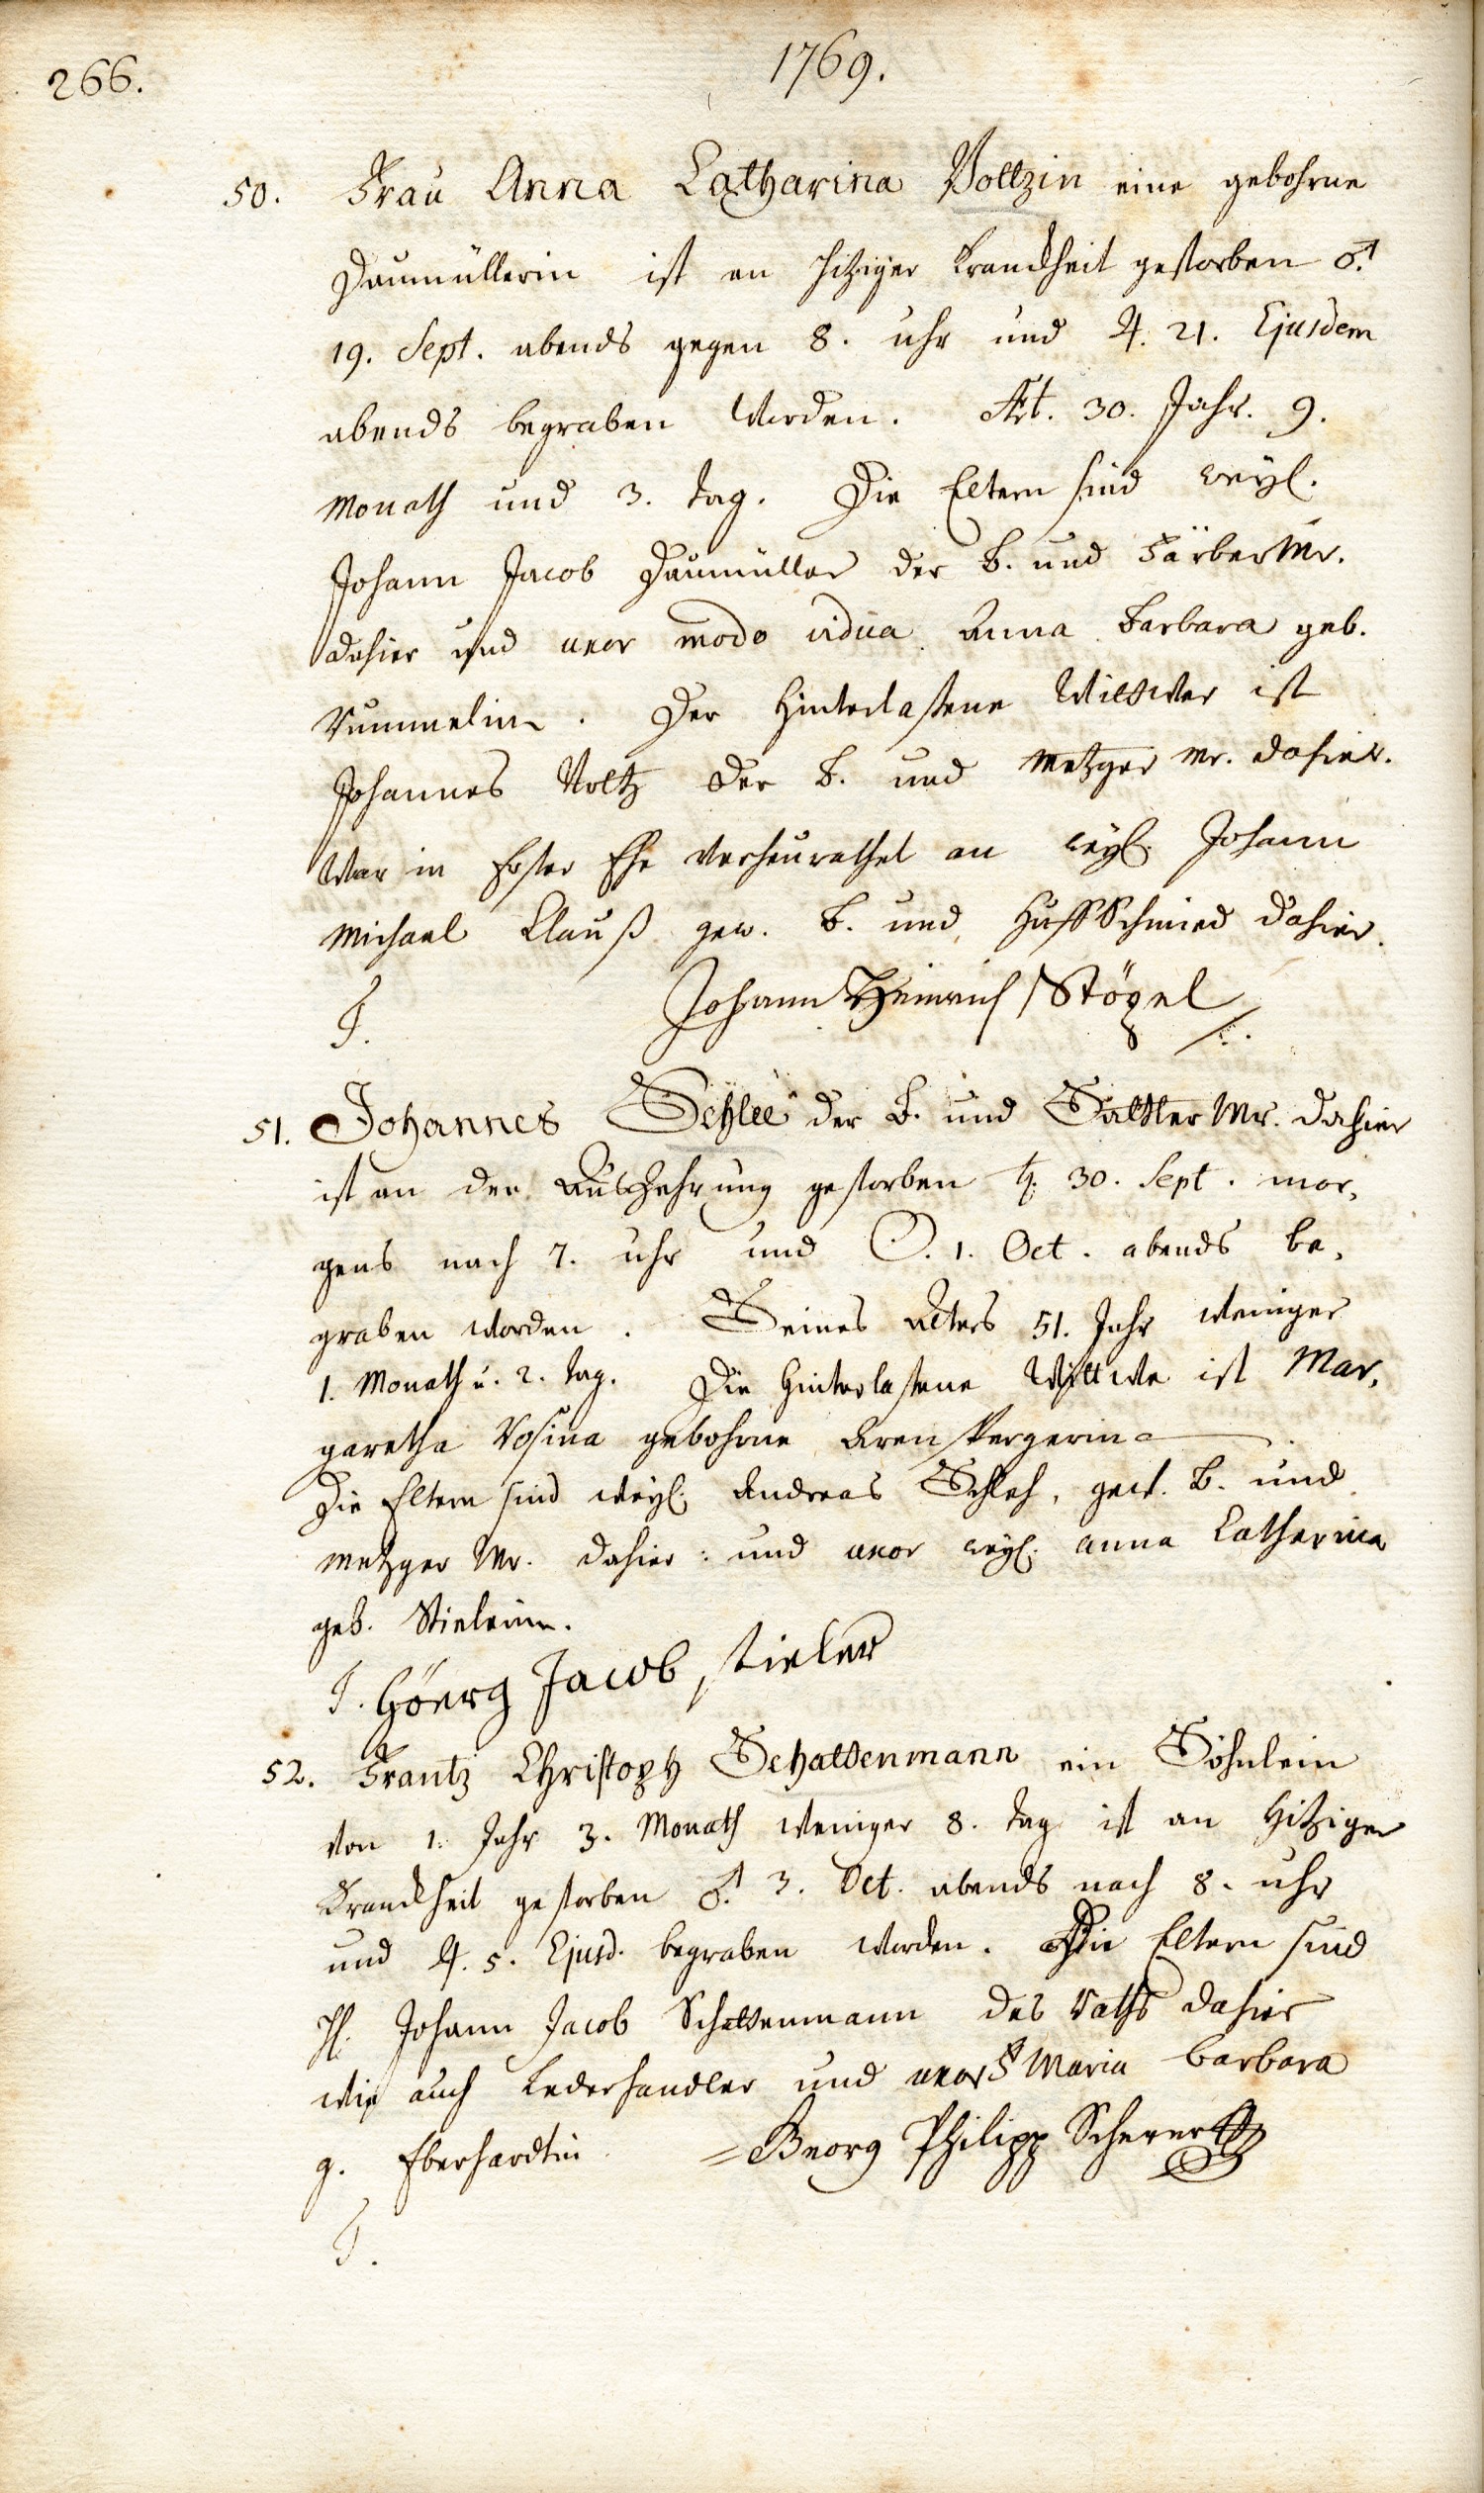 266.
1769.
50. Frau Anna Catharina Voltzin eine gebohrne
Daumüllerin ist an hitziger Kranckheit gestorben ♂.
19. Sept. abends gegen 8. uhr und ♃. 21. Ejusdem
abends begraben worden. Æt. 30. Jahr. 9.
Monath und 3. tag. Die Eltern sind weyl.
Johann Jacob Daumüller der B. und Färber Mr.
dahier und uxor modo vidua Anna Barbara geb.
Rummelin. Der Hinterlaßene Wittwer ist
Johannes Voltz der B. und Metzger Mr. dahier.
War in Erster Ehe verheurathet an weyl. Johann
Michael Clauß gew. B. und Huff Schmied dahier.
T. Johann Heinrich Stözel
51. Johannes Schlee der B. und Sattler Mr. dahier
ist an der Auszehrung gestorben ♄. 30. Sept. mor,
gens nach 7. uhr und ☉. 1. Oct. abends be,
graben worden. Seines alters 51. Jahr weniger
1. Monath u. 2. tag. Die Hinterlaßene Wittwe ist Mar,
garetha Rosina gebohrne
Die Eltern sind weyl. Andreas Schleh, gew. B. und
Metzger Mr. dahier: und uxor weyl. Anna Catharina
geb. Stielerin.
T. Göerg Jacob stieler
52. Frantz Christoph Schattenmann ein Söhnlein
von 1. Jahr 3. Monath weniger 8. tag ist an Hitziger
Kranckheit gestorben ♂. 3. Oct. abends nach 8. uhr
und ♃. 5. Ejusd. begraben worden. Die Eltern sind
H. Johann Jacob Schattenmann des Raths dahier
wie auch Lederhandler und uxor Maria Barbara
g. Eberhardtin. = Georg Philipp Scherer
T.